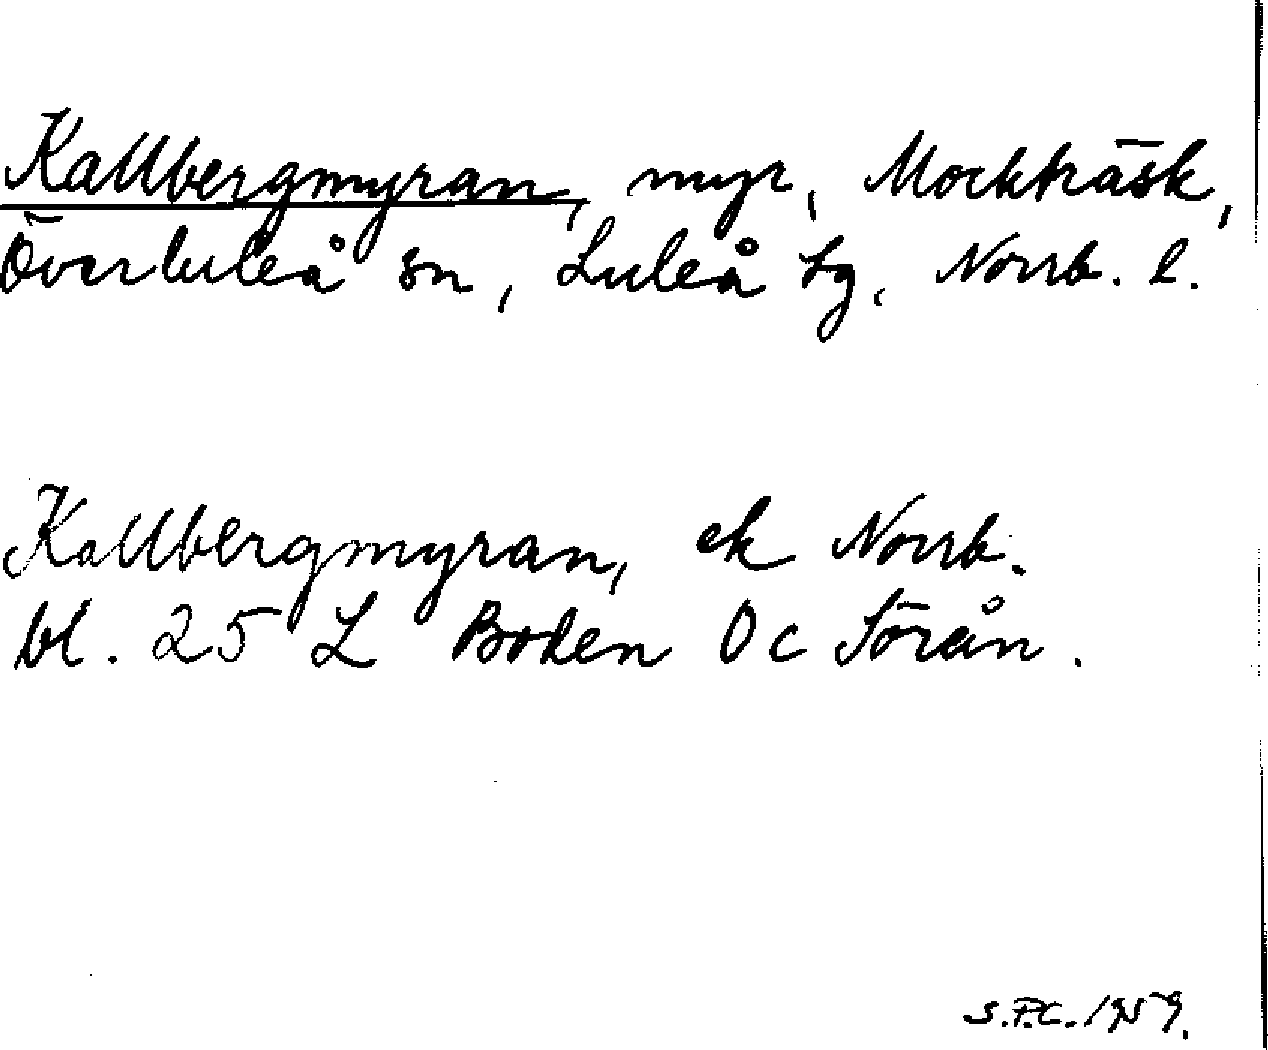 Kallbergmyran, myr, Mockträsk,
Överluleå sn, Luleå tg, Norrb. l.
Kallbergmyran, ek Norrb.
bl. 25 L Boden Oc Sörån.
S.P.C. 1959.